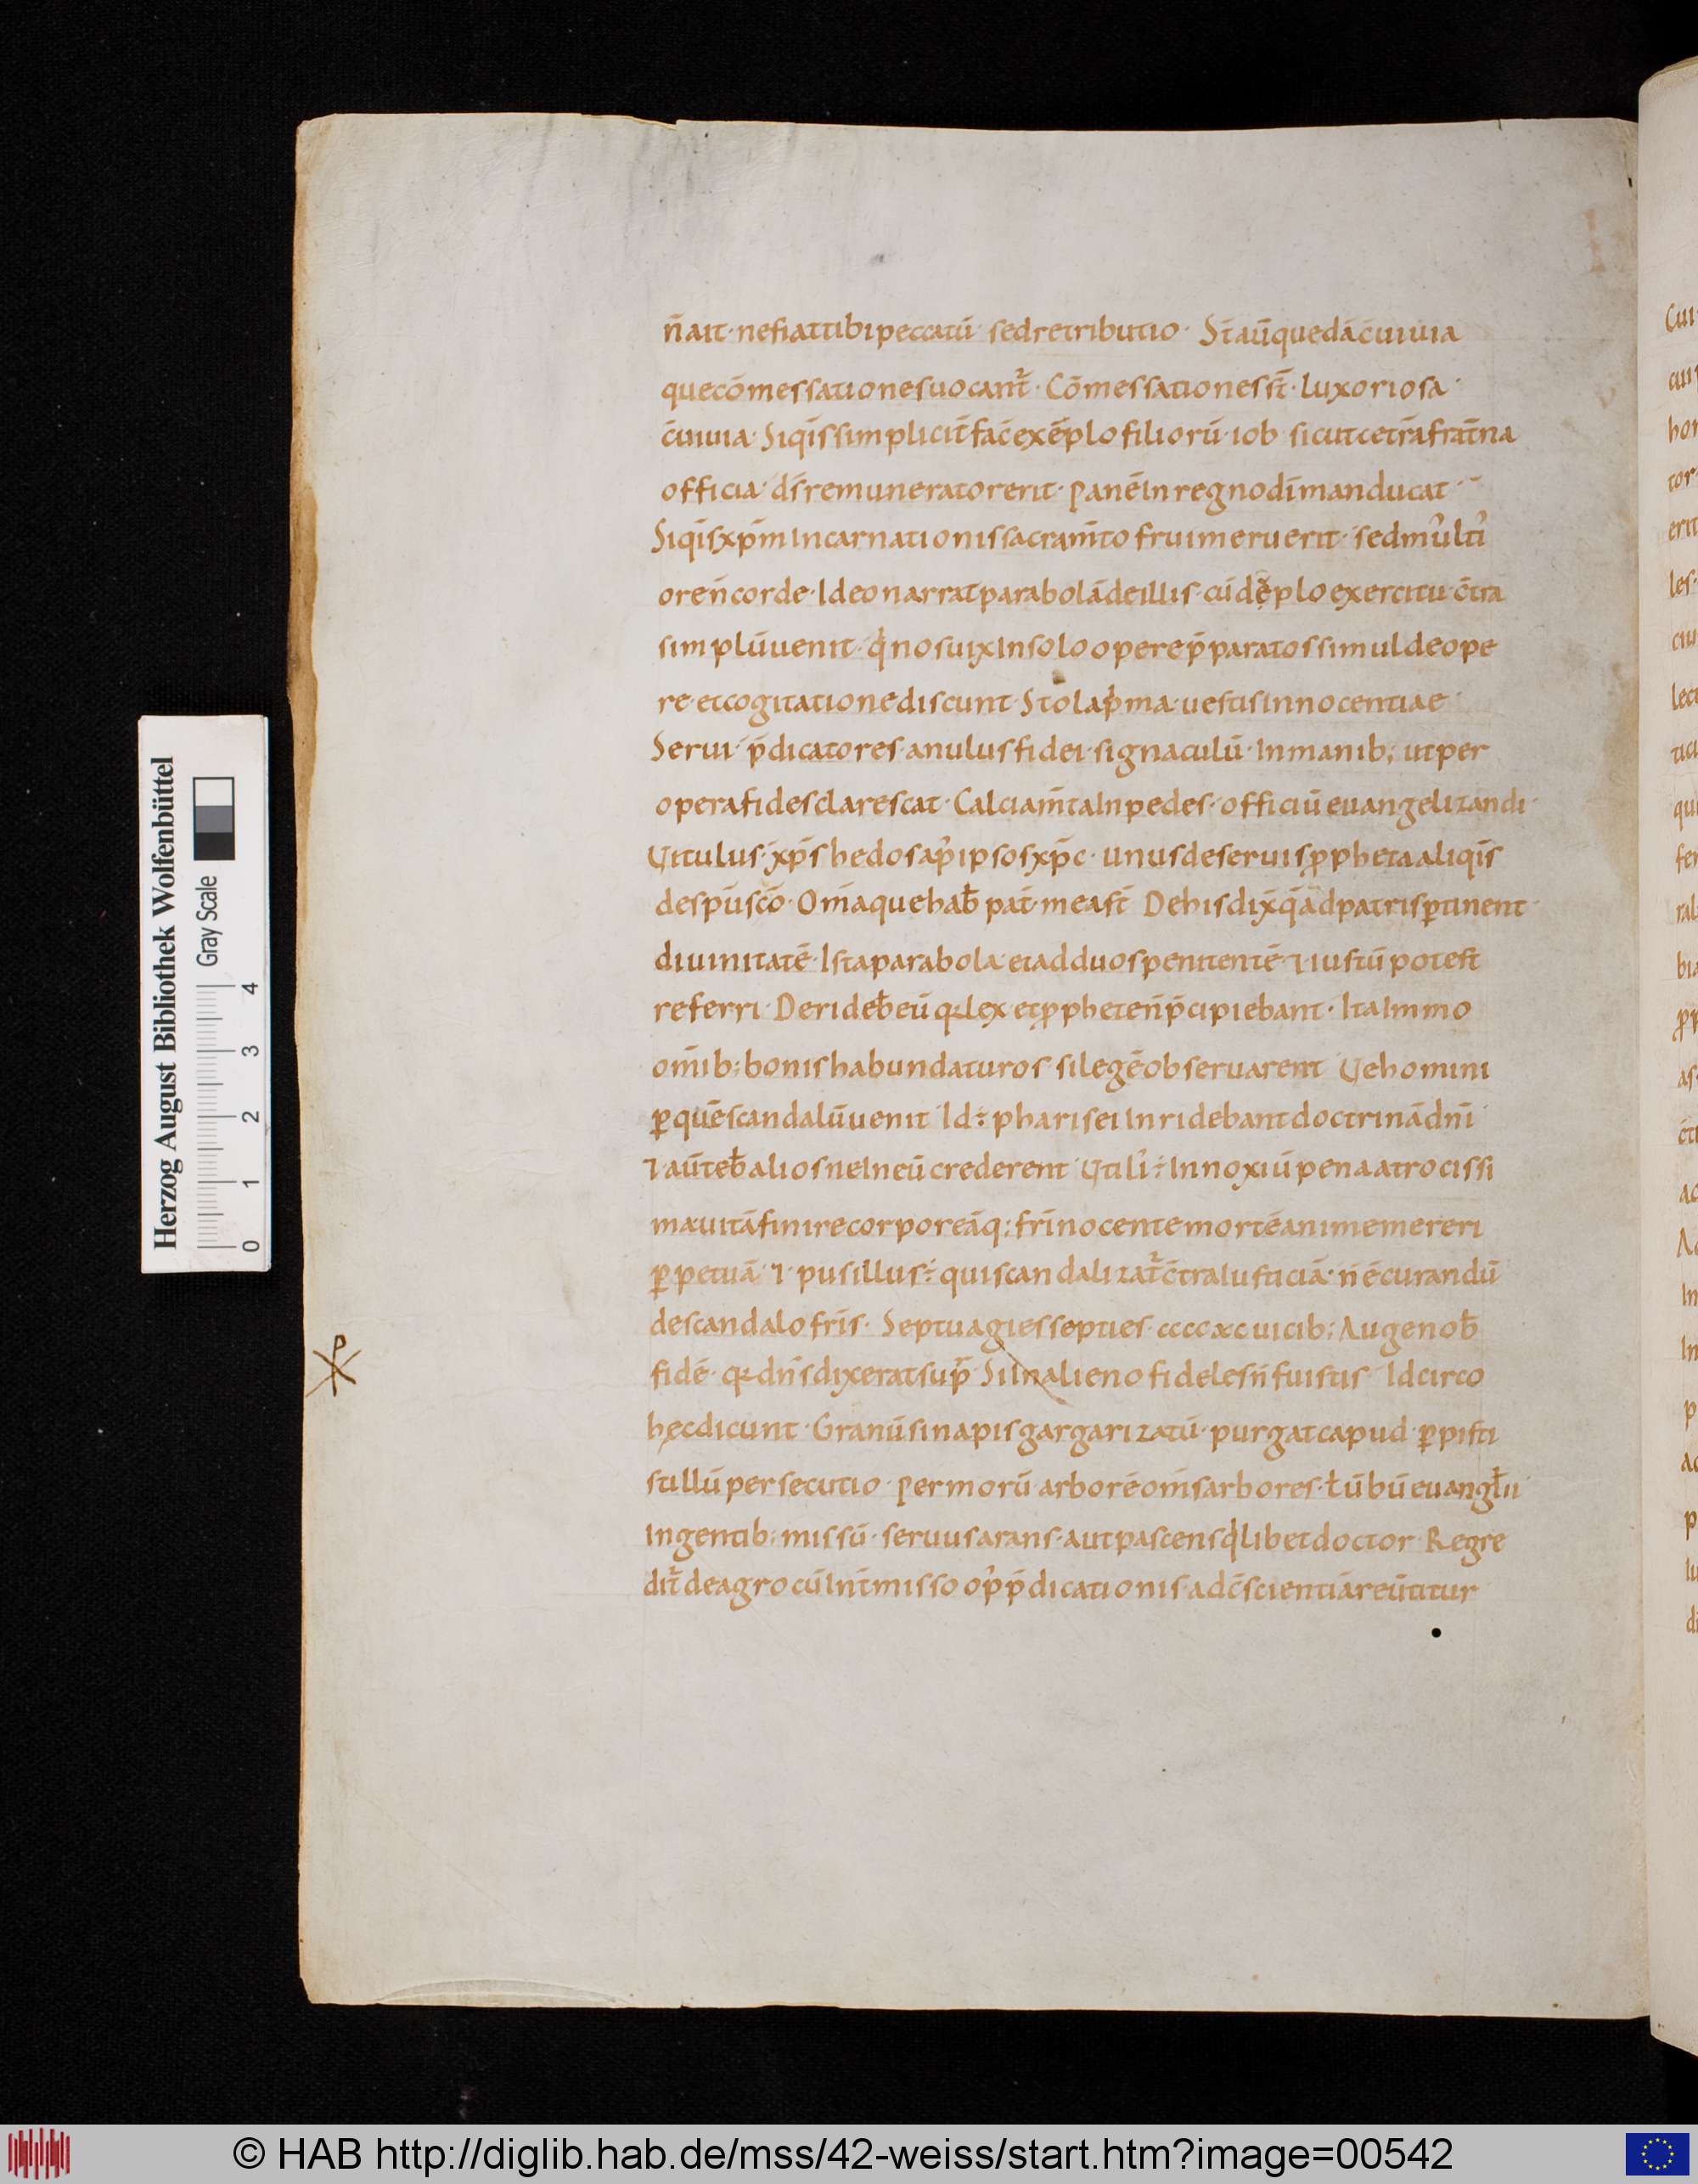 n̄ ait· ne fiat tibi peccatū· sed retributio· St̄ aū quedā c̄uiuia
que cōmessationes uocant᷑· Cōmessationes st̄· luxoriosa·
c̄uiuia· Siqis̄ simplicit̄ fac̄ exēplo filiorū· iob· sicut cetr̄a frat̄na
officia· ds̄ remunerator erit· panē In regno dī manducat·
Siqis̄ xp̄m Incarnationis sacram̄to frui meruerit· sed m̄ulti
ore n̄ corde· Ideo narrat parabolā de illis· cū dēplo exercitu· c̄tra
simplū uenit· qi nos uix In solo opere p̄paratos simul de ope
re· et cogitatione discunt· Stola pima· uestis Innocentiae·
Serui· p̄dicatores· anulus fidei· signaculū· In manib; ut per
opera fides clarescat· Calciam̄ta In pedes· officiū euangelizandi·
Uitulus· xp̄s hedos ap̉ ipsos xp̄c· unus de seruis ꝓpheta aliqis̄
despūsc̄o· Om̄a que hab̄ pat̄· mea st̄ De his dix̄ q̄ ad patris ꝑtinent·
diuinitatē· Ista parabola· et ad duos penitentē· ⁊ iustū potest
referri· Derideb̄ eū qꝛ lex et ꝓphete n̄ p̄cipiebant· Ita Immo
om̄ib; bonis habundaturos· si legē obseruarent Ue homini
ꝑ quē scandalū uenit Id ÷ pharisei Inridebant doctrinā dnī·
⁊ aūteb̄ alios ne In eū crederent· Utili᾽ ÷ Innoxiū pena atrocissi
ma· uitā finire corporeā q; frī nocente mortē anime mereri
ꝑpetuā ⁊· pusillus ÷ qui scandalizat᷑ c̄tra Iusticiā· n̄ ē curandū
de scandalo fris̄· Septuagies septies· cccc xc uicib; Auge nob̄
fidē· qꝛ dn̄s dixerat sup̄ Si In alieno fideles n̄ fuistis Idcirco
hęc dicunt· Granū sinapis gargarizatū· purgat capud· ꝑ pisti
stillū persecutio· per morū· arborē om̄s arbores· ł ūbū euangl̄ii
In gentib; missū· seruus arans· aut pascens qilibet doctor Regre
dit᷑ de agro cū Int̄misso op̉ p̄dicationis· ad c̄scientiā reūtitur
Herzog August Bibliothek Wolfenbüttel
Gray Scale
0 1 2 3 4
© HAB http://diglib.hab.de/mss/42-weiss/start.htm?image=00542